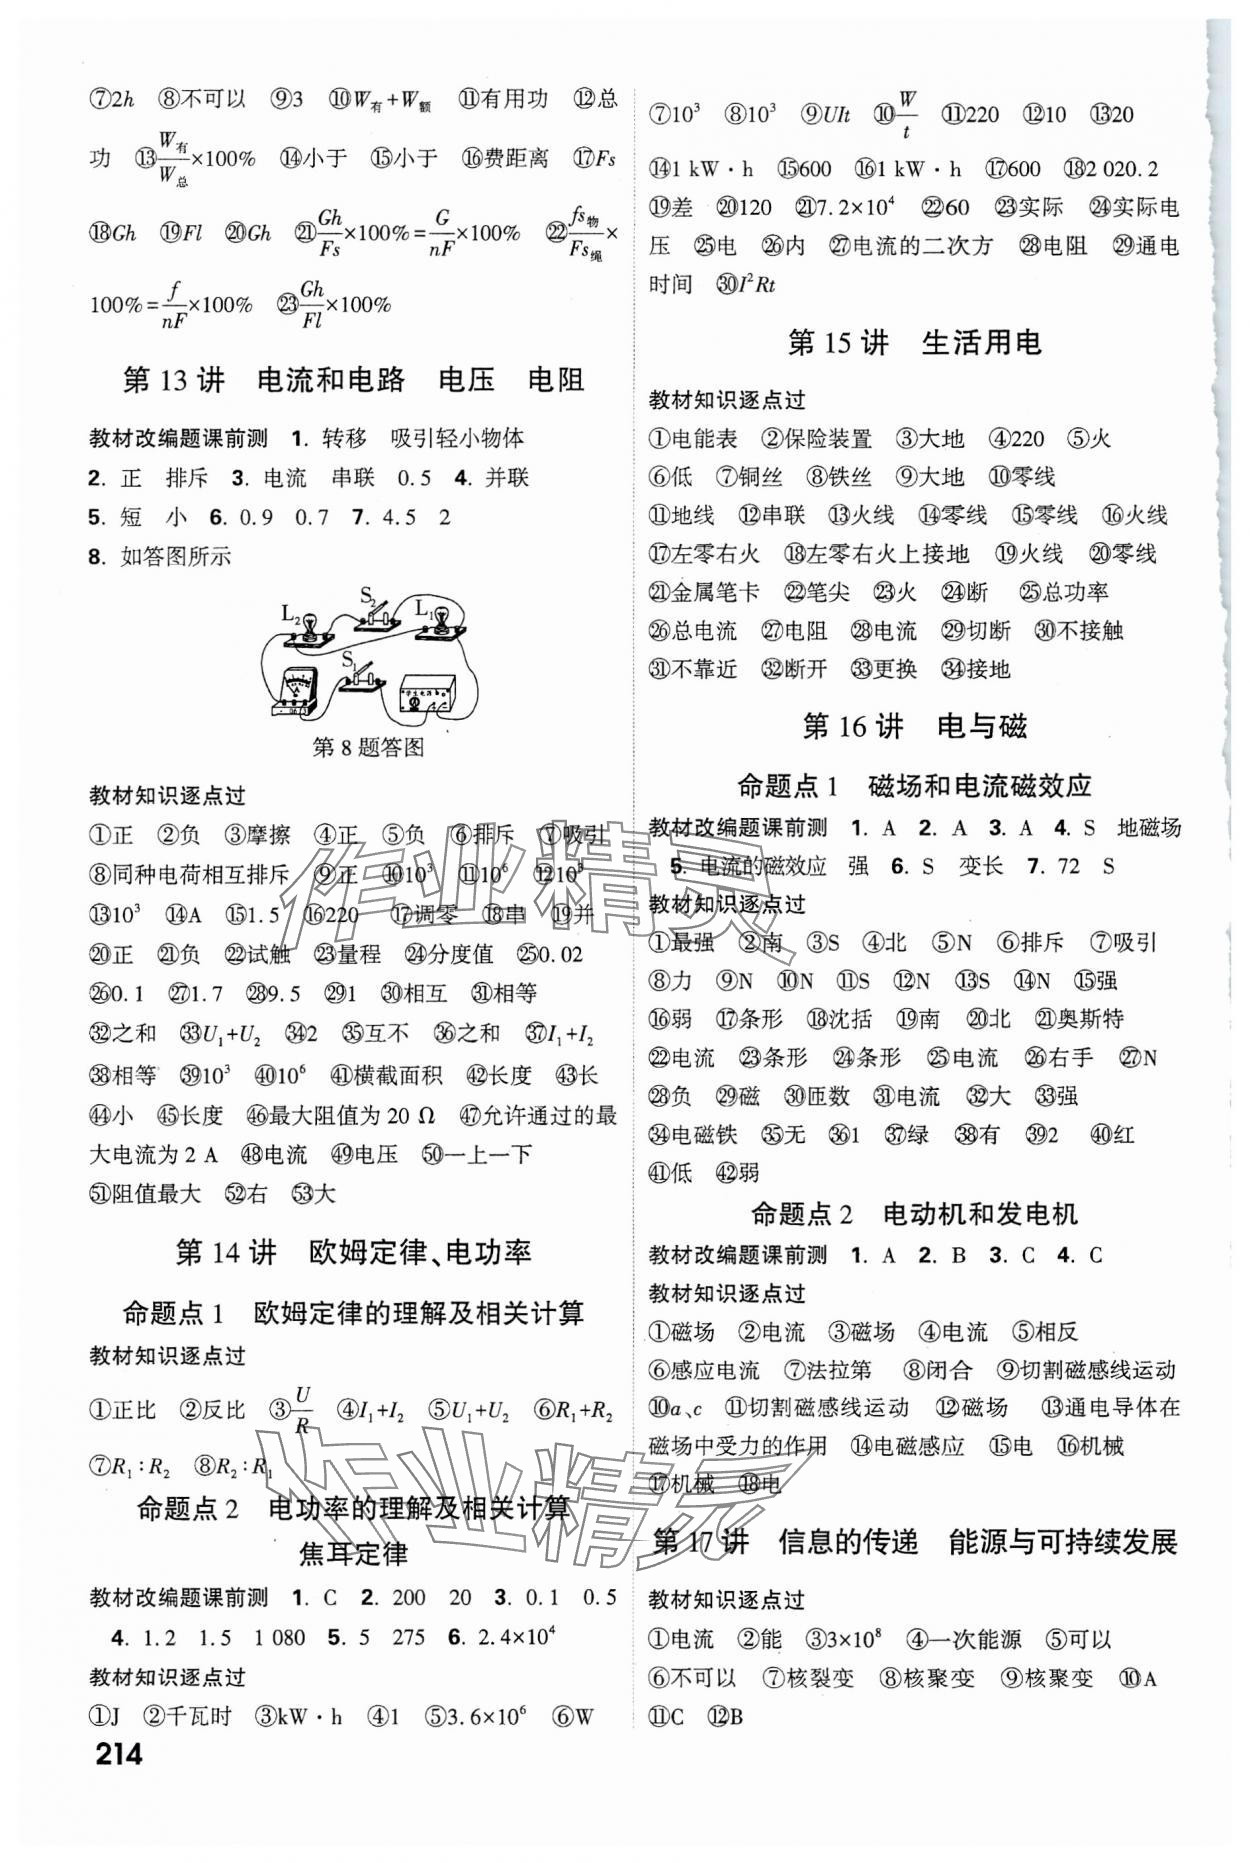 ⑦2h ⑧不可以 ⑨3 ⑩W有+W额 ⑪有用功 ⑫总
功 ⑬W有/W总×100% ⑭小于 ⑮小于 ⑯费距离 ⑰Fs
⑱Gh ⑲Fl ⑳Gh ㉑Gh/Fs×100%=G/nF×100% ㉒fs物/Fs绳×
100%=f/nF×100% ㉓Gh/Fl×100%
第 13 讲 电流和电路 电压 电阻
教材改编题课前测 1. 转移 吸引轻小物体
2. 正 排斥 3. 电流 串联 0.5 4. 并联
5. 短 小 6. 0.9 0.7 7. 4.5 2
8. 如答图所示
L₂ S₂ L₁
S₁
学生电源
第 8 题答图
教材知识逐点过
①正 ②负 ③摩擦 ④正 ⑤负 ⑥排斥 ⑦吸引
⑧同种电荷相互排斥 ⑨正 ⑩10³ ⑪10⁶ ⑫10³
⑬10³ ⑭A ⑮1.5 ⑯220 ⑰调零 ⑱串 ⑲并
⑳正 ㉑负 ㉒试触 ㉓量程 ㉔分度值 ㉕0.02
㉖0.1 ㉗1.7 ㉘9.5 ㉙1 ㉚相互 ㉛相等
㉜之和 ㉝U₁+U₂ ㉞2 ㉟互不 ㊱之和 ㊲I₁+I₂
㊳相等 ㊴10³ ㊵10⁶ ㊶横截面积 ㊷长度 ㊸长
㊹小 ㊺长度 ㊻最大阻值为 20 Ω ㊼允许通过的最
大电流为 2 A ㊽电流 ㊾电压 ㊿一上一下
51阻值最大 52右 53大
第 14 讲 欧姆定律、电功率
命题点 1 欧姆定律的理解及相关计算
教材知识逐点过
①正比 ②反比 ③U/R ④I₁+I₂ ⑤U₁+U₂ ⑥R₁+R₂
⑦R₁∶R₂ ⑧R₂∶R₁
命题点 2 电功率的理解及相关计算
焦耳定律
教材改编题课前测 1. C 2. 200 20 3. 0.1 0.5
4. 1.2 1.5 1 080 5. 5 275 6. 2.4×10⁴
教材知识逐点过
①J ②千瓦时 ③kW·h ④1 ⑤3.6×10⁶ ⑥W
214
⑦10³ ⑧10³ ⑨UIt ⑩W/t ⑪220 ⑫10 ⑬20
⑭1 kW·h ⑮600 ⑯1 kW·h ⑰600 ⑱2 020.2
⑲差 ⑳120 ㉑7.2×10⁴ ㉒60 ㉓实际 ㉔实际电
压 ㉕电 ㉖内 ㉗电流的二次方 ㉘电阻 ㉙通电
时间 ㉚I²Rt
第 15 讲 生活用电
教材知识逐点过
①电能表 ②保险装置 ③大地 ④220 ⑤火
⑥低 ⑦铜丝 ⑧铁丝 ⑨大地 ⑩零线
⑪地线 ⑫串联 ⑬火线 ⑭零线 ⑮零线 ⑯火线
⑰左零右火 ⑱左零右火上接地 ⑲火线 ⑳零线
㉑金属笔卡 ㉒笔尖 ㉓火 ㉔断 ㉕总功率
㉖总电流 ㉗电阻 ㉘电流 ㉙切断 ㉚不接触
㉛不靠近 ㉜断开 ㉝更换 ㉞接地
第 16 讲 电与磁
命题点 1 磁场和电流磁效应
教材改编题课前测 1. A 2. A 3. A 4. S 地磁场
5. 电流的磁效应 强 6. S 变长 7. 72 S
教材知识逐点过
①最强 ②南 ③S ④北 ⑤N ⑥排斥 ⑦吸引
⑧力 ⑨N ⑩N ⑪S ⑫N ⑬S ⑭N ⑮强
⑯弱 ⑰条形 ⑱沈括 ⑲南 ⑳北 ㉑奥斯特
㉒电流 ㉓条形 ㉔条形 ㉕电流 ㉖右手 ㉗N
㉘负 ㉙磁 ㉚匝数 ㉛电流 ㉜大 ㉝强
㉞电磁铁 ㉟无 ㊱1 ㊲绿 ㊳有 ㊴2 ㊵红
㊶低 ㊷弱
命题点 2 电动机和发电机
教材改编题课前测 1. A 2. B 3. C 4. C
教材知识逐点过
①磁场 ②电流 ③磁场 ④电流 ⑤相反
⑥感应电流 ⑦法拉第 ⑧闭合 ⑨切割磁感线运动
⑩a、c ⑪切割磁感线运动 ⑫磁场 ⑬通电导体在
磁场中受力的作用 ⑭电磁感应 ⑮电 ⑯机械
⑰机械 ⑱电
第 17 讲 信息的传递 能源与可持续发展
教材知识逐点过
①电流 ②能 ③3×10⁸ ④一次能源 ⑤可以
⑥不可以 ⑦核裂变 ⑧核聚变 ⑨核聚变 ⑩A
⑪C ⑫B
作业精灵
作业精灵